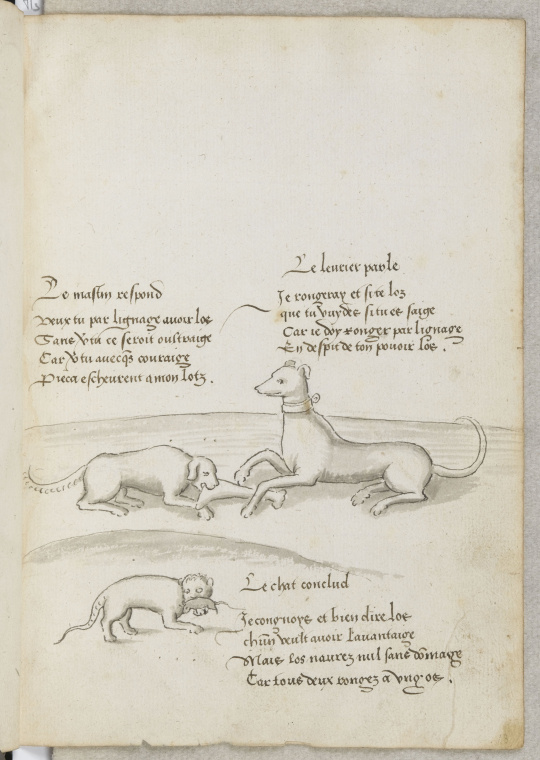 Le leurier parle
Je rongeray et si te loz
que tu vuydes si tu es saige
Car ie doy ronger par lignage
En despit de ton pouoir los.
Le mastin respond
Veux tu par lignage auoir los
Sans ce seroit oultraige
Car tu avecqs couraige
Pieca escheurent a mon lotz.
Le chat conclud
Je congnoys et bien dire los
chun veult auoir lauantaige
Mais los naurez nul sans domage
Car tous deux rongez a vng os.